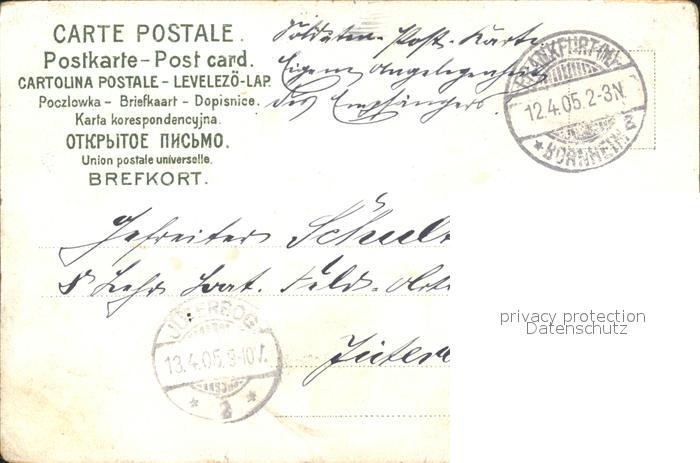 CARTE POSTALE.
Postkarte-Post card.
CARTOLINA POSTALE - LEVELEZŐ-LAP.
Poczlowka - Briefkaart - Dopisnice.
Karta korespondencyjna.
ОТКРЫТОЕ ПИСЬМО.
Union postale universelle.
BREFKORT.
Soldaten-Post-Karte
Eigene Angelegenheit
des Empfängers.
FRANKFURT (M)-
12.4.05.2-3N.
* BORNHEIM 2
Gefreiter Schul
Lehr Bat. Feld-Art
Jüter
JÜTERBOG
13.4.05.9-10V.
* 2 *
privacy protection
Datenschutz